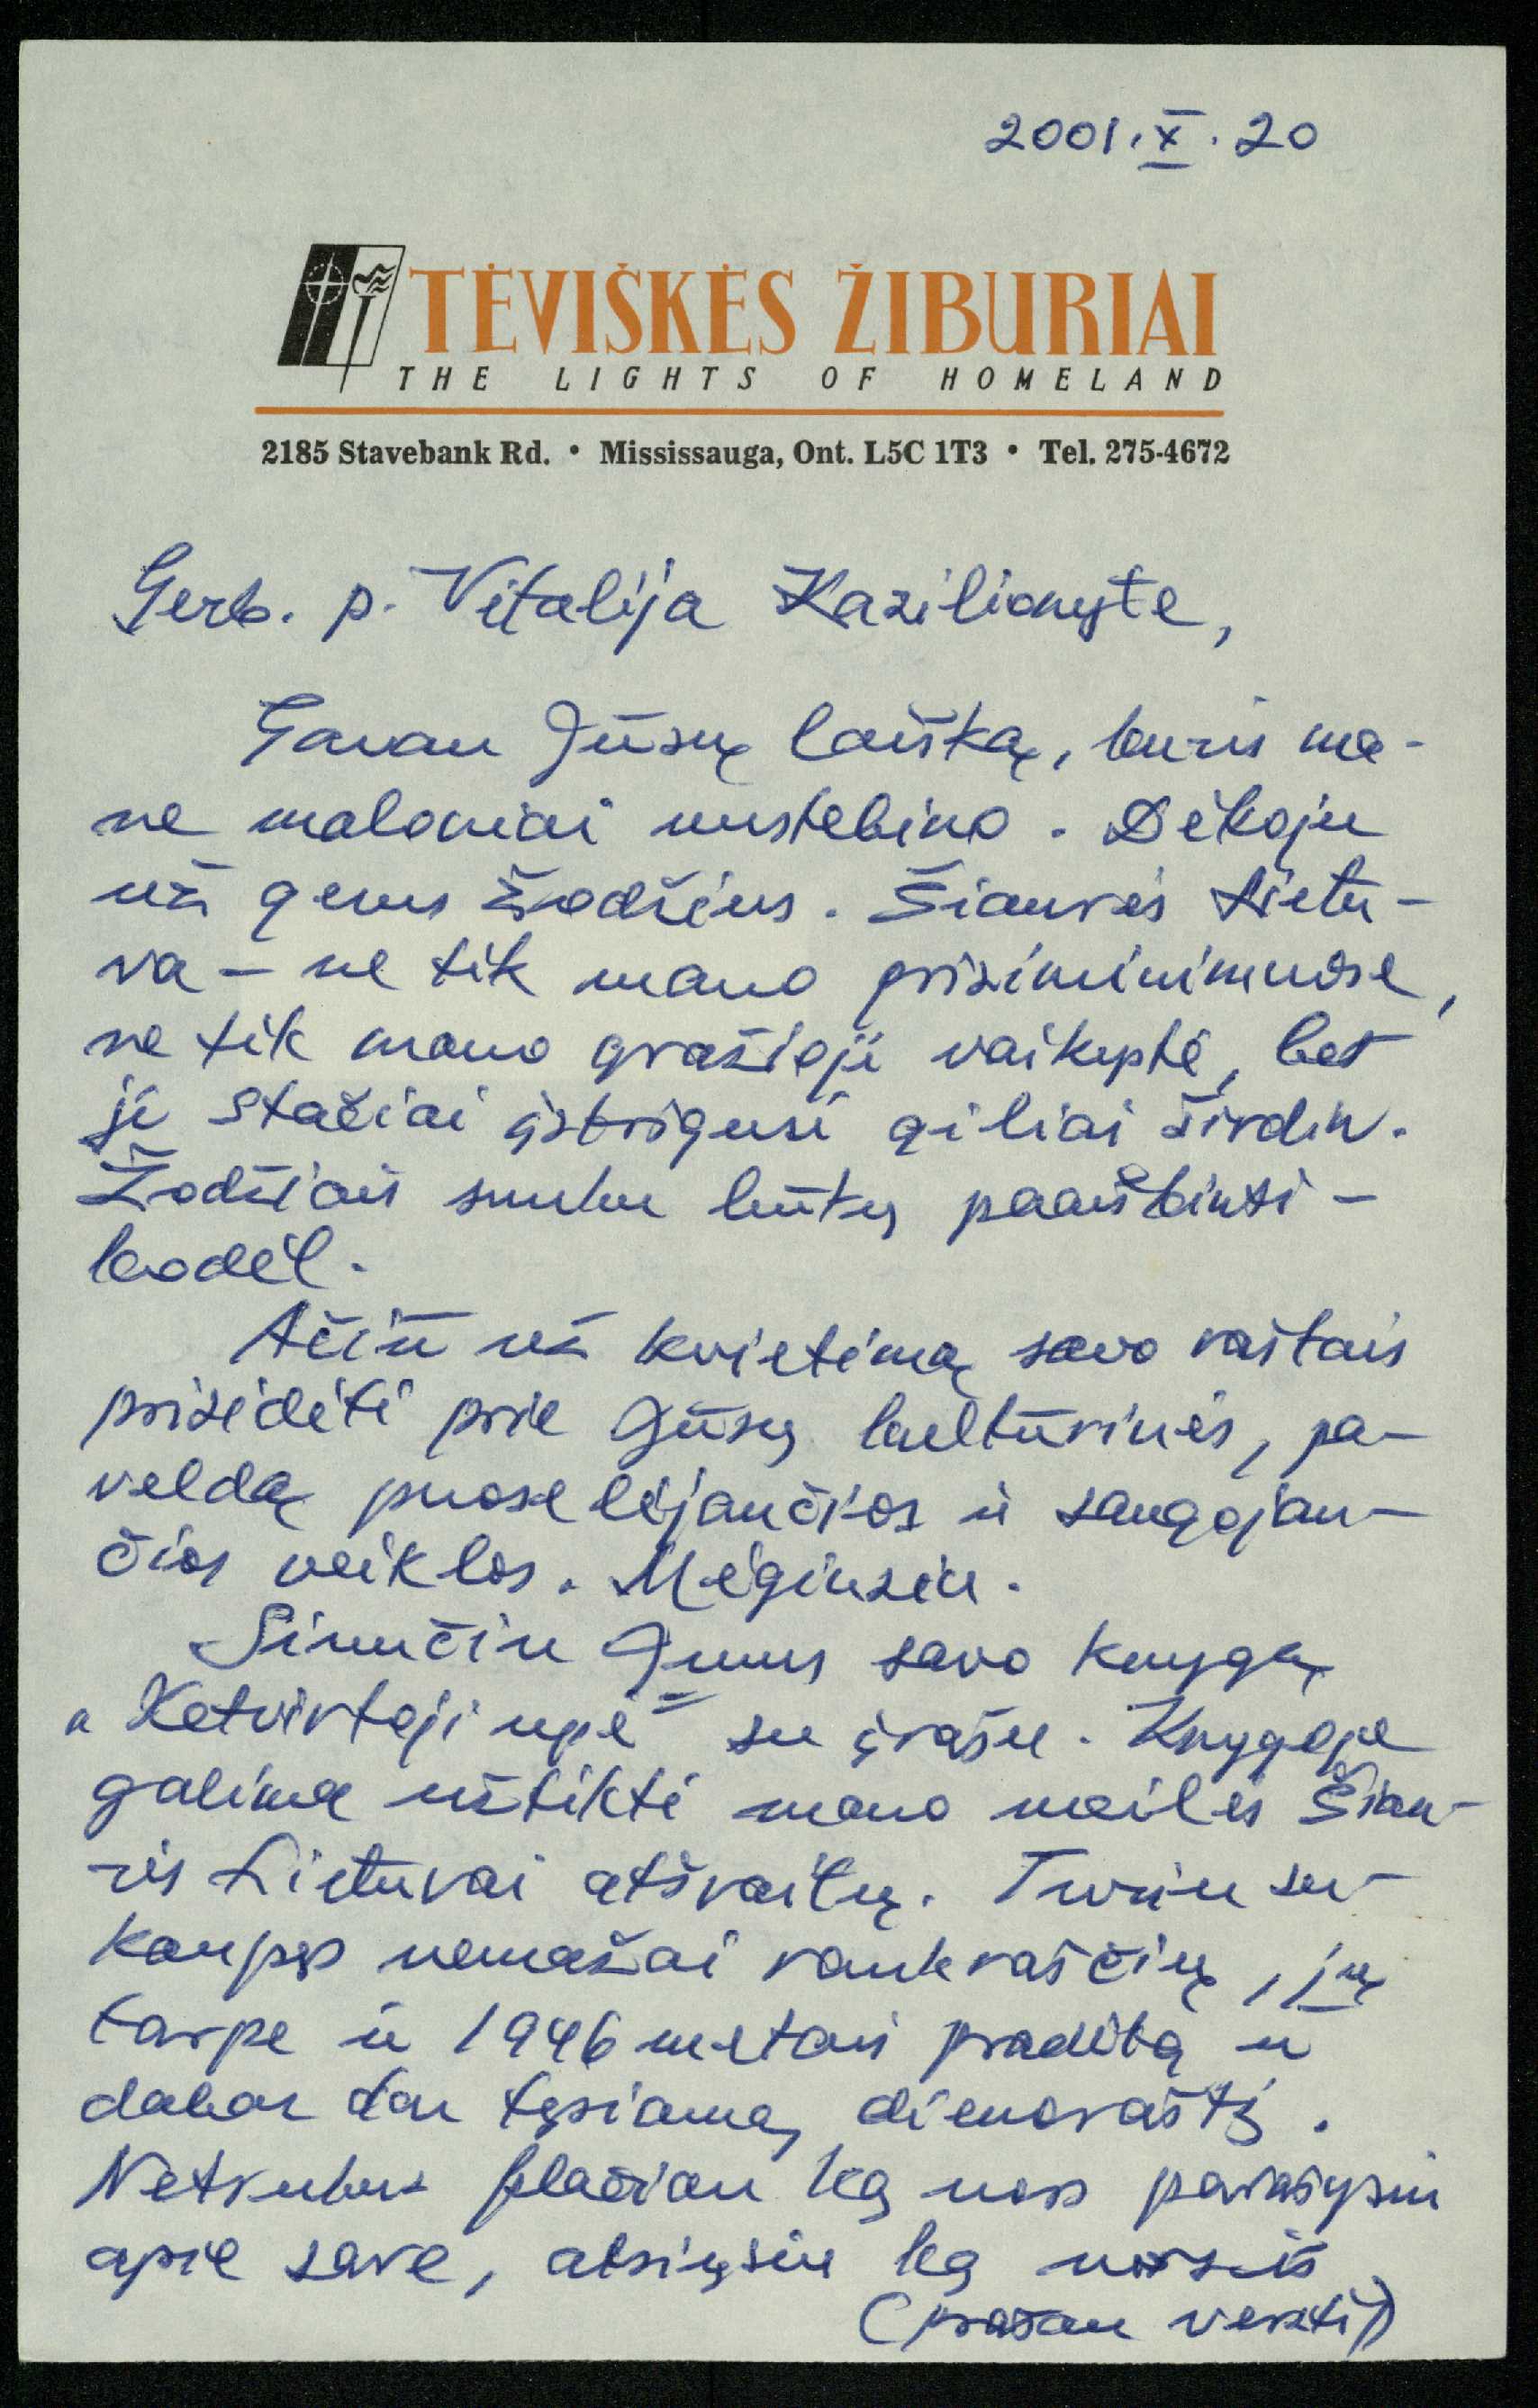 2001.X.20
TĖVIŠKĖS ŽIBURIAI
THE LIGHTS OF HOMELAND
2185 Stavebank Rd. • Mississauga, Ont. L5C 1T3 • Tel. 275-4672
Gerb. p. Vitalija Kazilionyte,
Gavau Jūsų laišką, kuris ma-
ne maloniai nustebino. Dėkoju
už gerus žodžius. Šiaurės Lietu-
va – ne tik mano prisiminimuose,
ne tik mano gražioji vaikystė, bet
ji stačiai įstrigusi giliai širdin.
Žodžiais sunku būtų paaiškinti –
kodėl.
Ačiū už kvietimą savo raštais
prisidėti prie Jūsų kultūrinės, pa-
veldą puoselėjančios ir saugojan-
čios veiklos. Mėginsiu.
Siunčiu Jums savo knygą
„Ketvirtoji upė" su įrašu. Knygoje
galima užtikti mano meilės Šiau-
rės Lietuvai atšvaitų. Turiu su-
kaupęs nemažai rankraščių, jų
tarpe ir 1946 metais pradėtą ir
dabar dar tęsiamą dienoraštį.
Netrukus plačiau ką nors parašysiu
apie save, atsiųsiu ką nors iš
(prašau versti)